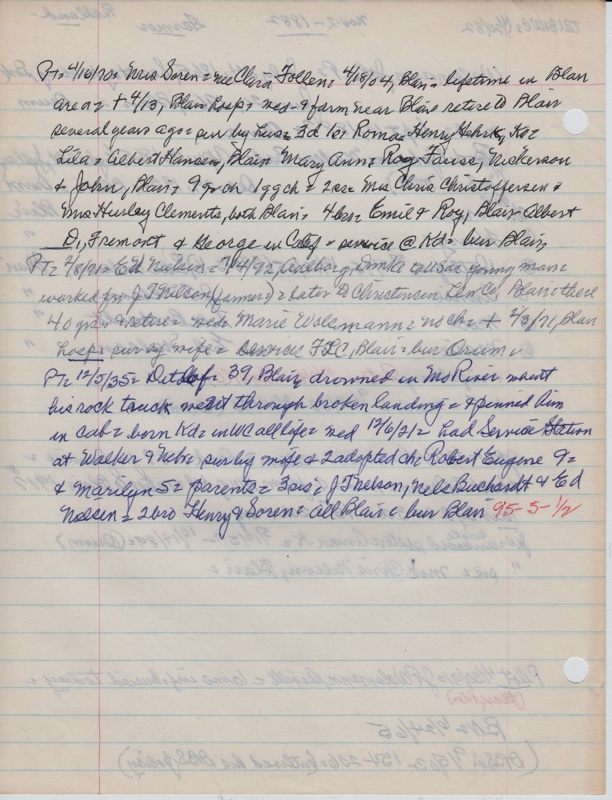 PT= 4/16/70= Mrs Soren= nee Clara Follen= 4/18/04, Blair= lifetime in Blair
area= + 4/13, Blair Hosp= wed= & farm near Blair retire to Blair
several years ago= sur by hus= 3d 1s= Roma= Henry
Lila= Albert Hansen, Blair Mary Ann= Roy Fauss, Nickerson
& John, Blair= 9 grch 1ggch= 2sis= Mrs Chris Christoffersen=
Mrs Hurley Clements, both Blair= 4bro= Emil & Roy, Blair= Albert
D, Fremont & George in Calif= service @ Kd= bur Blair,
PT= 2/8/71= Ed Nielsen= 1/4/92, Aalborg, Dmk= to USa= young man=
worked for J T Nelson (farmers)= later to Christensen Co, Blair= there
40 yrs= & retire= wed= Marie Wolsmann= no ch= + 2/3/71, Blair
hosp= sur by wife= services FLC, Blair= bur Orum=
PT= 12/5/35= 39, Blair, drowned in Mo River when
his rock truck went through broken landing= & pinned him
in cab= born Kd= in WC all life= wed 12/6/21= had Service Station
at Walker & Nebr= sur by wife & 2 adopted ch= Robert Eugene 9=
& Marilyn 5= parents= 3 sis= J T Nelson, Nels Buchardt & Ed
Nielsen= 2 bro Henry & Soren= all Blair= bur Blair 95-5-1/2